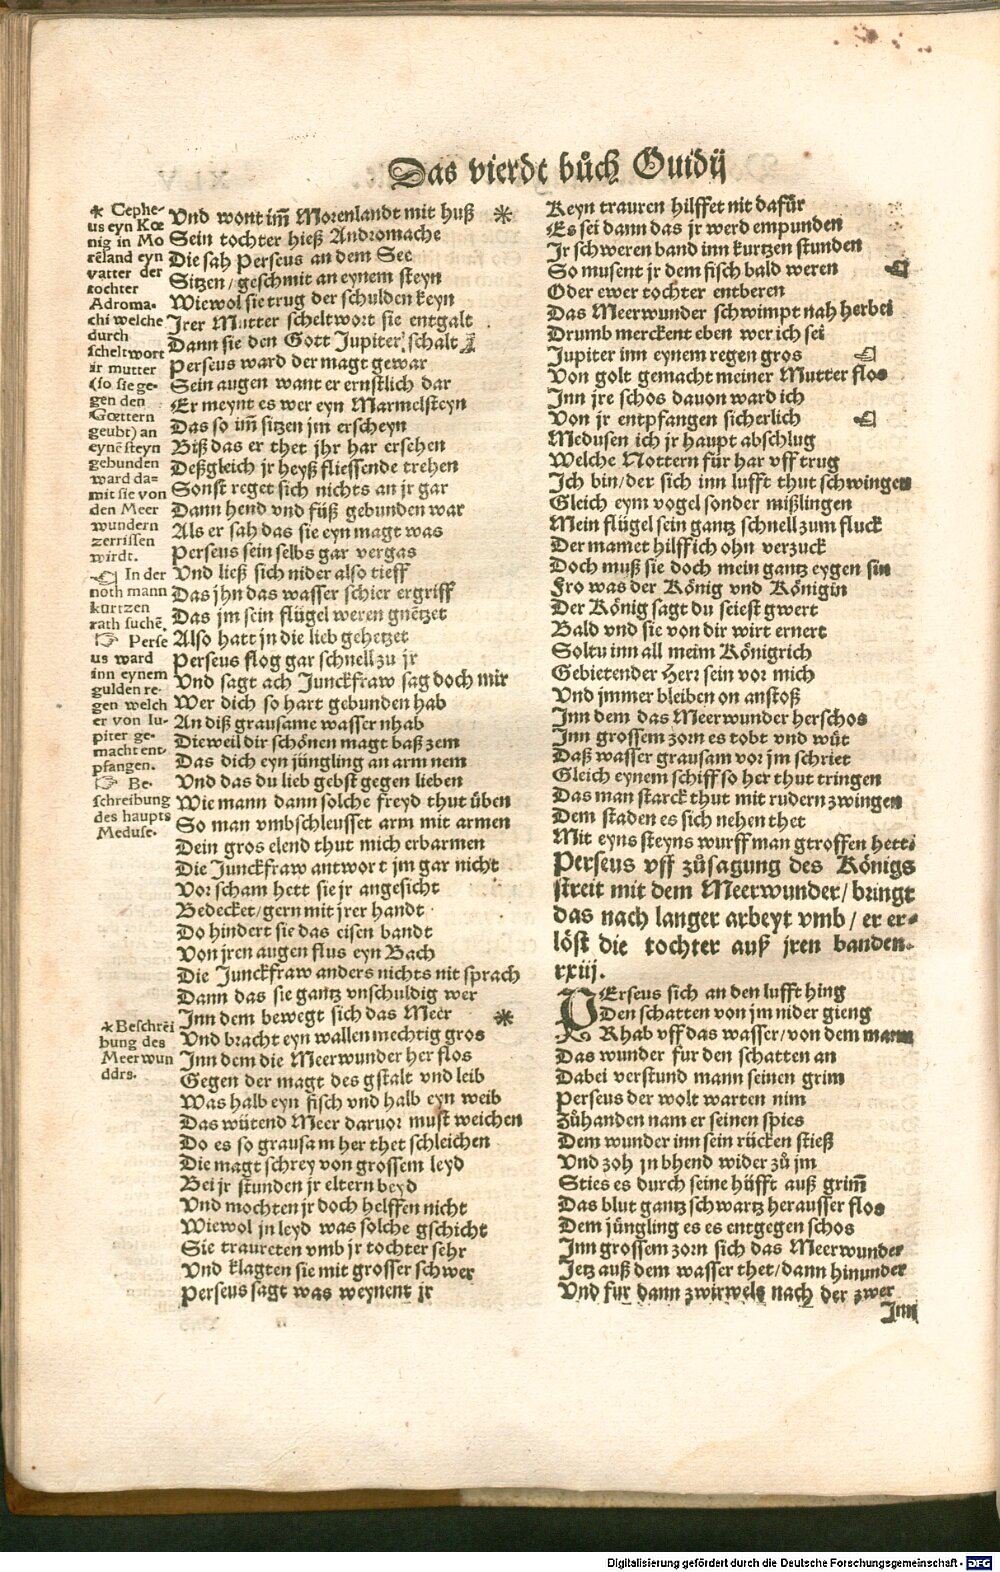 Das vierdt bůch Ouidij
* Cephe-
us eyn Kœ
nig in Mo
rẽland eyn
vatter der
tochter
Adroma-
chi welche
durch
scheltwort
ir mutter
(so sie ge-
gen den
Gœttern
geubt) an
eynẽ steyn
gebunden
ward da=
mit sie von
den Meer
wundern
zerrissen
wirdt.
☜ In der
noth mann
kurtzen
rath suchẽ.
☞ Perse
us ward
inn eynem
gulden re-
gen welch
er von Iu-
piter ge-
macht ent-
pfangen.
☞ Be-
schreibung
des haupts
Meduse.
* Beschrei
bung des
Meerwun
ddrs.
Vnd wont im̃ Morenlandt mit huß *
Sein tochter hieß Andromache
Die sah Perseus an dem See
Sitzen/geschmit an eynem steyn
Wiewol sie trug der schulden keyn
Irer Mutter scheltwort sie entgalt
Dann sie den Gott Jupiter schalt
Perseus ward der magt gewar
Sein augen want er ernstlich dar
Er meynt es wer eyn Marmelsteyn
Das so im̃ sitzen jm erscheyn
Biß das er thet jhr har ersehen
Deßgleich jr heyß fliessende trehen
Sonst reget sich nichts an jr gar
Dann hend vnd füß gebunden war
Als er sah das sie eyn magt was
Perseus sein selbs gar vergas
Vnd ließ sich nider also tieff
Das jhn das wasser schier ergriff
Das jm sein flügel weren gnẽtzet
Also hatt jn die lieb gehetzet
Perseus flog gar schnell zu jr
Vnd sagt ach Junckfraw sag doch mir
Wer dich so hart gebunden hab
An diß grausame wasser nhab
Dieweil dir schönen magt baß zem
Das dich eyn jüngling an arm nem
Vnd das du lieb gebst gegen lieben
Wie mann dann solche freyd thut üben
So man vmbschleusset arm mit armen
Dein gros elend thut mich erbarmen
Die Junckfraw antwort jm gar nicht
Vor scham hett sie jr angesicht
Bedecket/gern mit jrer handt
Do hindert sie das eisen bandt
Von jren augen flus eyn Bach
Die Junckfraw anders nichts nit sprach
Dann das sie gantz vnschuldig wer
Inn dem bewegt sich das Meer *
Vnd bracht eyn wallen mechtig gros
Inn dem die Meerwunder her flos
Gegen der magt des gstalt vnd leib
Was halb eyn fisch vnd halb eyn weib
Das wütend Meer daruor must weichen
Do es so grausam her thet schleichen
Die magt schrey von grossem leyd
Bei jr stunden jr eltern beyd
Vnd mochten jr doch helffen nicht
Wiewol jn leyd was solche gschicht
Sie traureten vmb jr tochter sehr
Vnd klagten sie mit grosser schwer
Perseus sagt was weynent jr
Keyn trauren hilffet nit dafür
Es sei dann das jr werd empunden
Jr schweren band inn kurtzen stunden
So musent jr dem fisch bald weren ☜
Oder ewer tochter entberen
Das Meerwunder schwimpt nah herbei
Drumb merckent eben wer ich sei
Jupiter inn eynem regen gros ☜
Von golt gemacht meiner Mutter flos
Inn jre schos dauon ward ich
Von jr entpfangen sicherlich ☜
Medusen ich jr haupt abschlug
Welche Nottern für har vff trug
Ich bin/der sich inn lufft thut schwingen
Gleich eym vogel sonder mißlingen
Mein flügel sein gantz schnell zum fluck
Der mamet hilff ich ohn verzuck
Doch muß sie doch mein gantz eygen sin
Fro was der König vnd Königin
Der König sagt du seiest gwert
Bald vnd sie von dir wirt ernert
Soltu inn all meim Königrich
Gebietender Herr sein vor mich
Vnd jmmer bleiben on anstoß
Inn dem das Meerwunder herschos
Inn grossem zorn es tobt vnd wüt
Daß wasser grausam vor jm schriet
Gleich eynem schiff so her thut tringen
Das man starck thut mit rudern zwingen
Dem staden es sich nehen thet
Mit eyns steyns wurff man gtroffen hett:
Perseus vff zůsagung des Königs
streit mit dem Meerwunder/bringt
das nach langer arbeyt vmb/er er-
löst die tochter auß jren banden.
xxiij.
PErseus sich an den lufft hing
Den schatten von jm nider gieng
Rhab vff das wasser/von dem mann
Das wunder fur den schatten an
Dabei verstund mann seinen grim
Perseus der wolt warten nim
Zůhanden nam er seinen spies
Dem wunder inn sein rücken stieß
Vnd zoh jn bhend wider zů jm
Sties es durch seine hüfft auß grim̃
Das blut gantz schwartz herausser flos
Dem jüngling es es entgegen schos
Inn grossem zorn sich das Meerwunder
Jetz auß dem wasser thet/dann hinunder
Vnd fur dann zwirwels nach der zwer
Inn
Digitalisierung gefördert durch die Deutsche Forschungsgemeinschaft - DFG